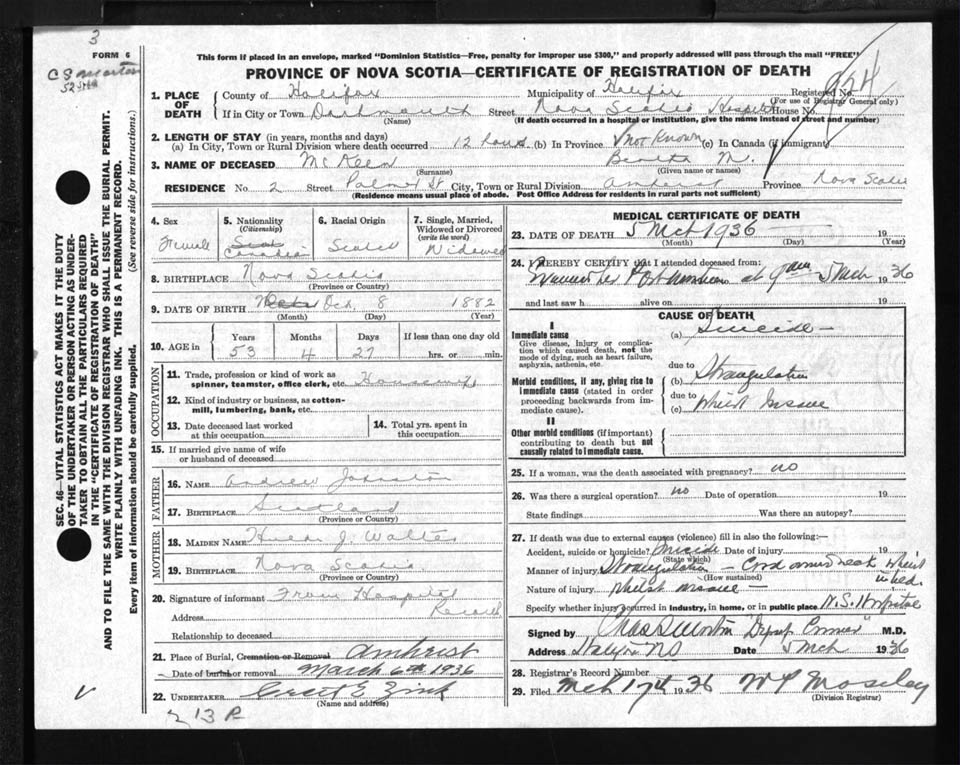 3
FORM 6
C S Morton
This form if placed in an envelope, marked "Dominion Statistics—Free, penalty for improper use $300," and properly addressed will pass through the mail "FREE"
PROVINCE OF NOVA SCOTIA—CERTIFICATE OF REGISTRATION OF DEATH
924
SEC. 46—VITAL STATISTICS ACT MAKES IT THE DUTY
OF THE UNDERTAKER OR PERSON ACTING AS UNDER-
TAKER TO OBTAIN ALL THE PARTICULARS REQUIRED
IN THE "CERTIFICATE OF REGISTRATION OF DEATH"
AND TO FILE THE SAME WITH THE DIVISION REGISTRAR WHO SHALL ISSUE THE BURIAL PERMIT.
WRITE PLAINLY WITH UNFADING INK. THIS IS A PERMANENT RECORD.
Every item of information should be carefully supplied. (See reverse side for instructions.)
1. PLACE OF DEATH County of Halifax Municipality of Halifax Registered No.
(For use of Registrar General only)
If in City or Town Dartmouth Street Nova Scotia Hospital House No.
(Name) (If death occurred in a hospital or institution, give the name instead of street and number)
2. LENGTH OF STAY (in years, months and days)
(a) In City, Town or Rural Division where death occurred 12 hours (b) In Province Not Known (c) In Canada (if immigrant)
3. NAME OF DECEASED M. 
(Surname) (Given name or names)
RESIDENCE No. 2 Street Palmer St City, Town or Rural Division Amherst Province Nova Scotia
(Residence means usual place of abode. Post Office Address for residents in rural parts not sufficient)
4. Sex Female
5. Nationality (Citizenship) Scot Canadian
6. Racial Origin Scotch
7. Single, Married, Widowed or Divorced (write the word) Widowed
8. BIRTHPLACE Nova Scotia
(Province or Country)
9. DATE OF BIRTH Oct. 8 1882
(Month) (Day) (Year)
10. AGE in Years 53 Months 4 Days 27 If less than one day old
hrs. or min.
OCCUPATION
11. Trade, profession or kind of work as
spinner, teamster, office clerk, etc. Housewife
12. Kind of industry or business, as cotton-
mill, lumbering, bank, etc.
13. Date deceased last worked
at this occupation
14. Total yrs. spent in
this occupation
15. If married give name of wife
or husband of deceased
FATHER
16. NAME Andrew Johnston
17. BIRTHPLACE Scotland
(Province or Country)
MOTHER
18. MAIDEN NAME J. Walter
19. BIRTHPLACE Nova Scotia
(Province or Country)
20. Signature of informant From Hospital
Address Record
Relationship to deceased
21. Place of Burial, Cremation or Removal Amherst
Date of burial or removal March 6th 1936
22. UNDERTAKER E. Zink
(Name and address)
213 R
MEDICAL CERTIFICATE OF DEATH
23. DATE OF DEATH 5 Mch 1936 19
(Month) (Day) (Year)
24. I HEREBY CERTIFY that I attended deceased from:
at 9 am 5 Mch 1936
and last saw h alive on 19
CAUSE OF DEATH
I
Immediate cause
Give disease, injury or complica-
tion which caused death, not the
mode of dying, such as heart failure,
asphyxia, asthenia, etc.
(a) Suicide —
due to
Morbid conditions, if any, giving rise to
immediate cause (stated in order
proceeding backwards from im-
mediate cause).
(b) Strangulation
due to
(c) Whilst Insane
II
Other morbid conditions (if important)
contributing to death but not
causally related to immediate cause.
25. If a woman, was the death associated with pregnancy? no
26. Was there a surgical operation? no Date of operation 19
State findings Was there an autopsy?
27. If death was due to external causes (violence) fill in also the following:—
Accident, suicide or homicide? Suicide Date of injury 19
(State which)
Manner of injury Strangulation — Cord around neck whilst
in bed.
(How sustained)
Nature of injury Whilst insane —
Specify whether injury occurred in industry, in home, or in public place N.S. Hospital
Signed by Chas S Morton "Deputy Coroner" M.D.
Address Halifax NS Date 5 Mch 1936
28. Registrar's Record Number
29. Filed Mch 17th 1936 W P Moseley
(Division Registrar)